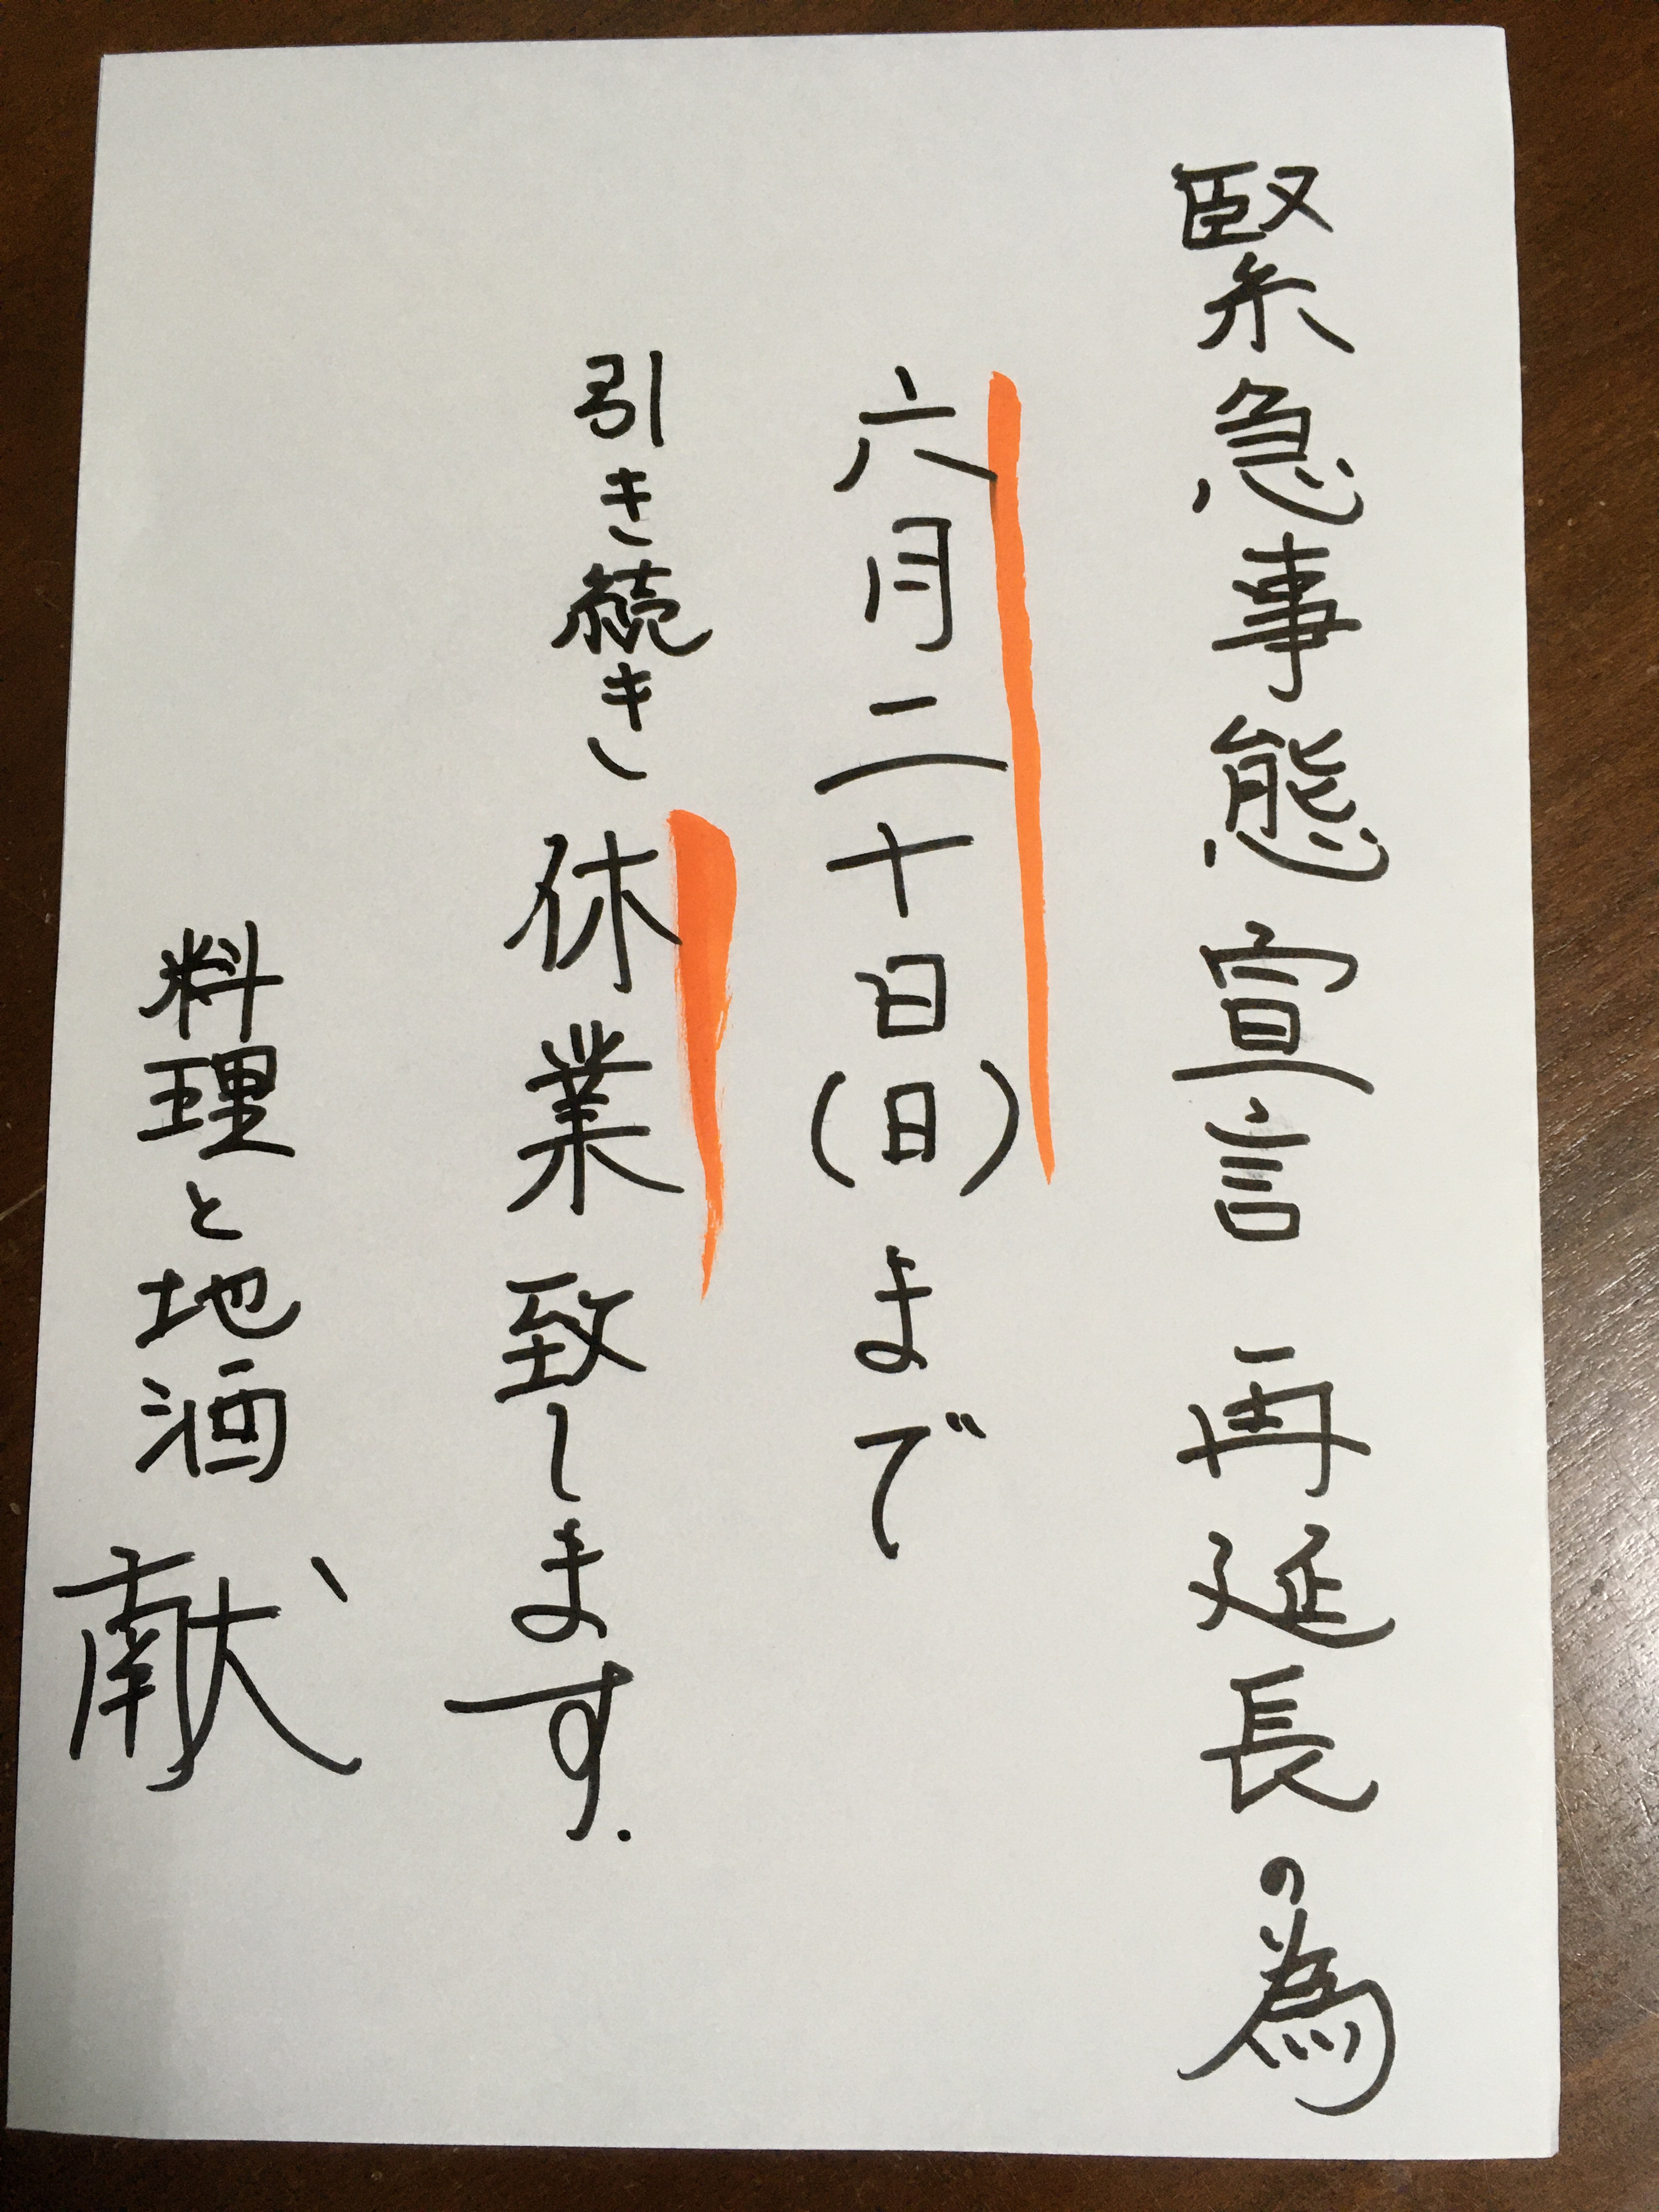 緊急事態宣言 再延長の為
六月二十日(日)まで
引き続き休業致します.
料理と地酒 献